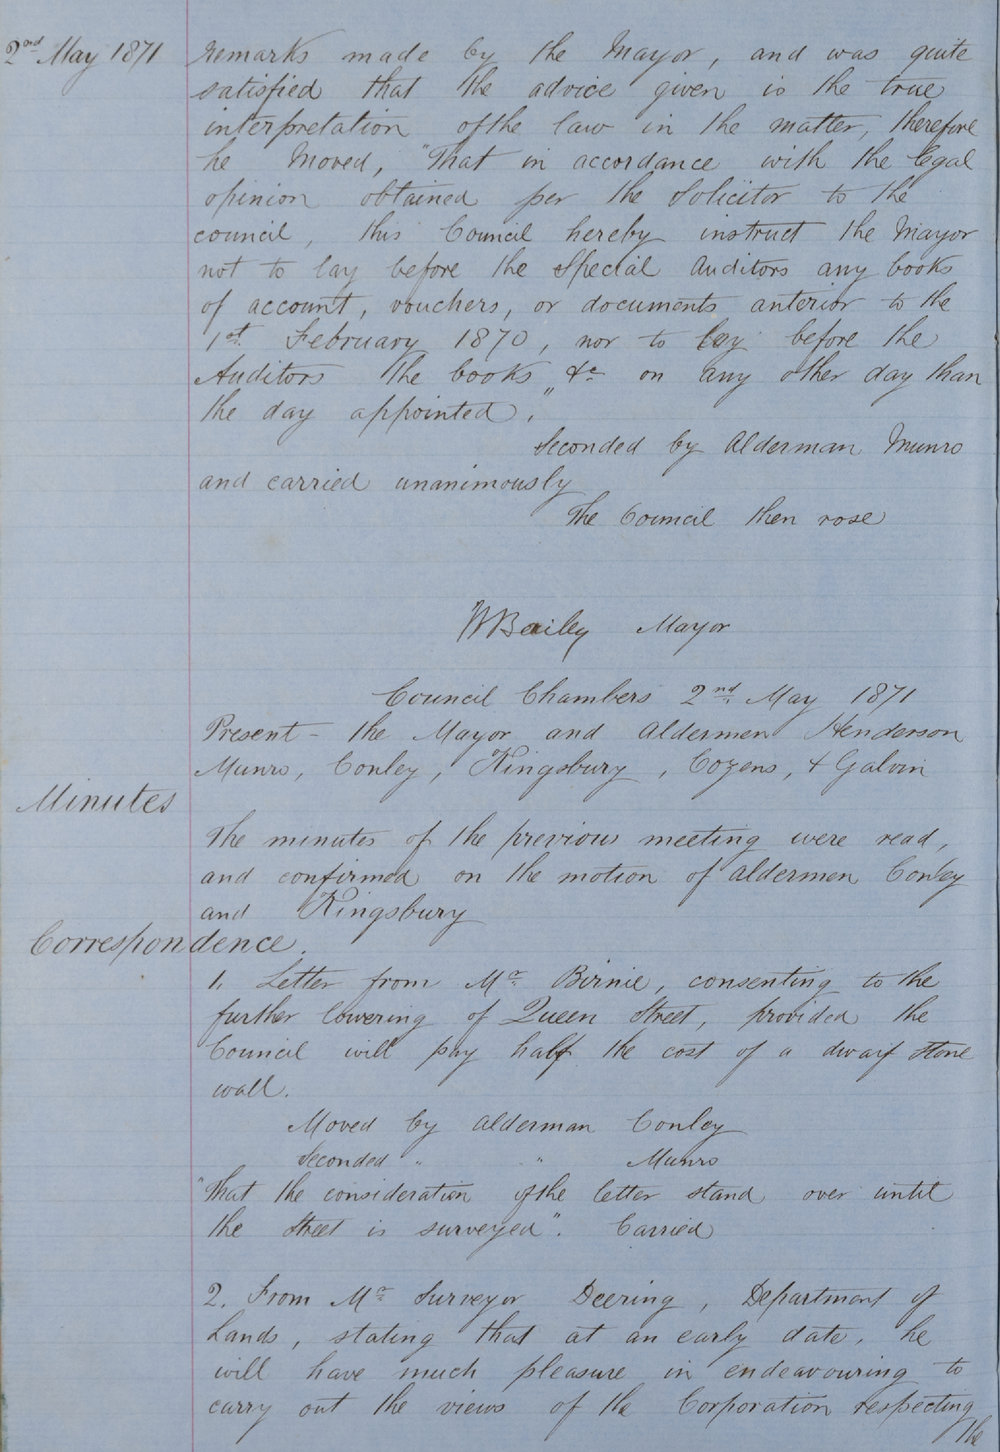 2nd May 1871
remarks made by the Mayor, and was quite
satisfied that the advice given is the true
interpretation of the law in the matter, therefore
he Moved, "That in accordance with the legal
opinion obtained per the Solicitor to the
council, this Council hereby instruct the Mayor
not to lay before the Special Auditors any books
of account, vouchers, or documents anterior to the
1st February 1870, nor to lay before the
Auditors the books &c on any other day than
the day appointed."
Seconded by Alderman Munro
and carried unanimously
The Council then rose
WBailey Mayor
Council Chambers 2nd May 1871
Present - the Mayor and Aldermen Henderson
Munro, Conley, Kingsbury, Cozens, & Galvin
Minutes
The minutes of the previous meeting were read,
and confirmed on the motion of Aldermen Conley
and Kingsbury
Correspondence.
1. Letter from Mr Birnie, consenting to the
further lowering of Queen Street, provided the
Council will pay half the cost of a dwarf stone
wall.
Moved by Alderman Conley
Seconded " " Munro
"That the consideration of the letter stand over until
the Street is surveyed". Carried
2. From Mr Surveyor Deering, Department of
Lands, stating that at an early date, he
will have much pleasure in endeavouring to
carry out the views of the Corporation respecting
the